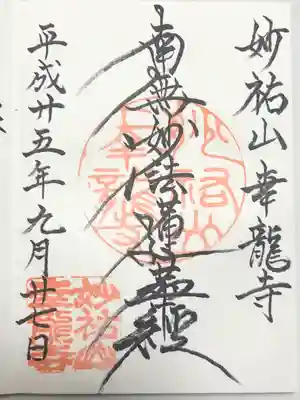 妙祐山幸龍寺
南無妙法蓮華経
平成廿五年九月廿七日
妙祐山
幸龍寺